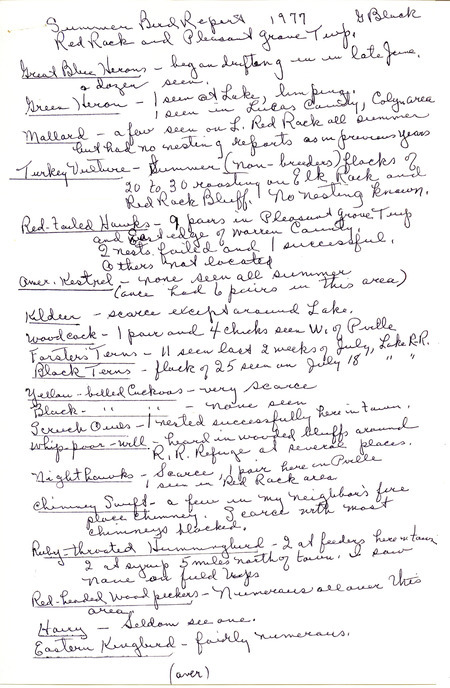 Summer Bird Report 1977 G Black
Red Rock and Pleasant Grove Twp.
Great Blue Herons - began drifting in in late June.
a dozen seen.
Green Heron - 1 seen at Lake, limping.
1 seen in Lucas County, Colyn area
Mallard - a few seen on L. Red Rock all summer
but had no nesting reports as in previous years
Turkey Vulture - Summer (non-breeders) flocks of
20 to 30 roosting on Elk Rock and
Red Rock Bluff. No nesting known.
Red-tailed Hawks - 9 pairs in Pleasant Grove Twp
and East edge of Warren County.
2 nests failed and 1 successful.
Others not located
Amer. Kestrel - none seen all summer
(once had 6 pairs in this area)
Kildeer - scarce except around Lake.
Woodcock - 1 pair and 4 chicks seen W. of P'ville
Forsters Terns - 11 seen last 2 weeks of July, Lake R.R.
Black Terns - flock of 25 seen on July 18 " "
Yellow-billed Cuckoos - very scarce
Black- " " - none seen
Screech Owls - 1 nested successfully here in town.
Whip-poor-will - heard in wooded bluffs around
R.R. Refuge at several places.
Nighthawks - Scarce, 1 pair here in P'ville
1 seen in Red Rock area
Chimney Swift - a few in my neighbor's fire
place chimney. Scarce with most
chimneys blocked.
Ruby-throated Hummingbird - 2 at feeders here in town
2 at syrup 5 miles north of town. I saw
none on field trips
Red-headed Woodpeckers - Numerous all over this
area.
Hairy - Seldom see one.
Eastern Kingbird - fairly numerous.
(over)